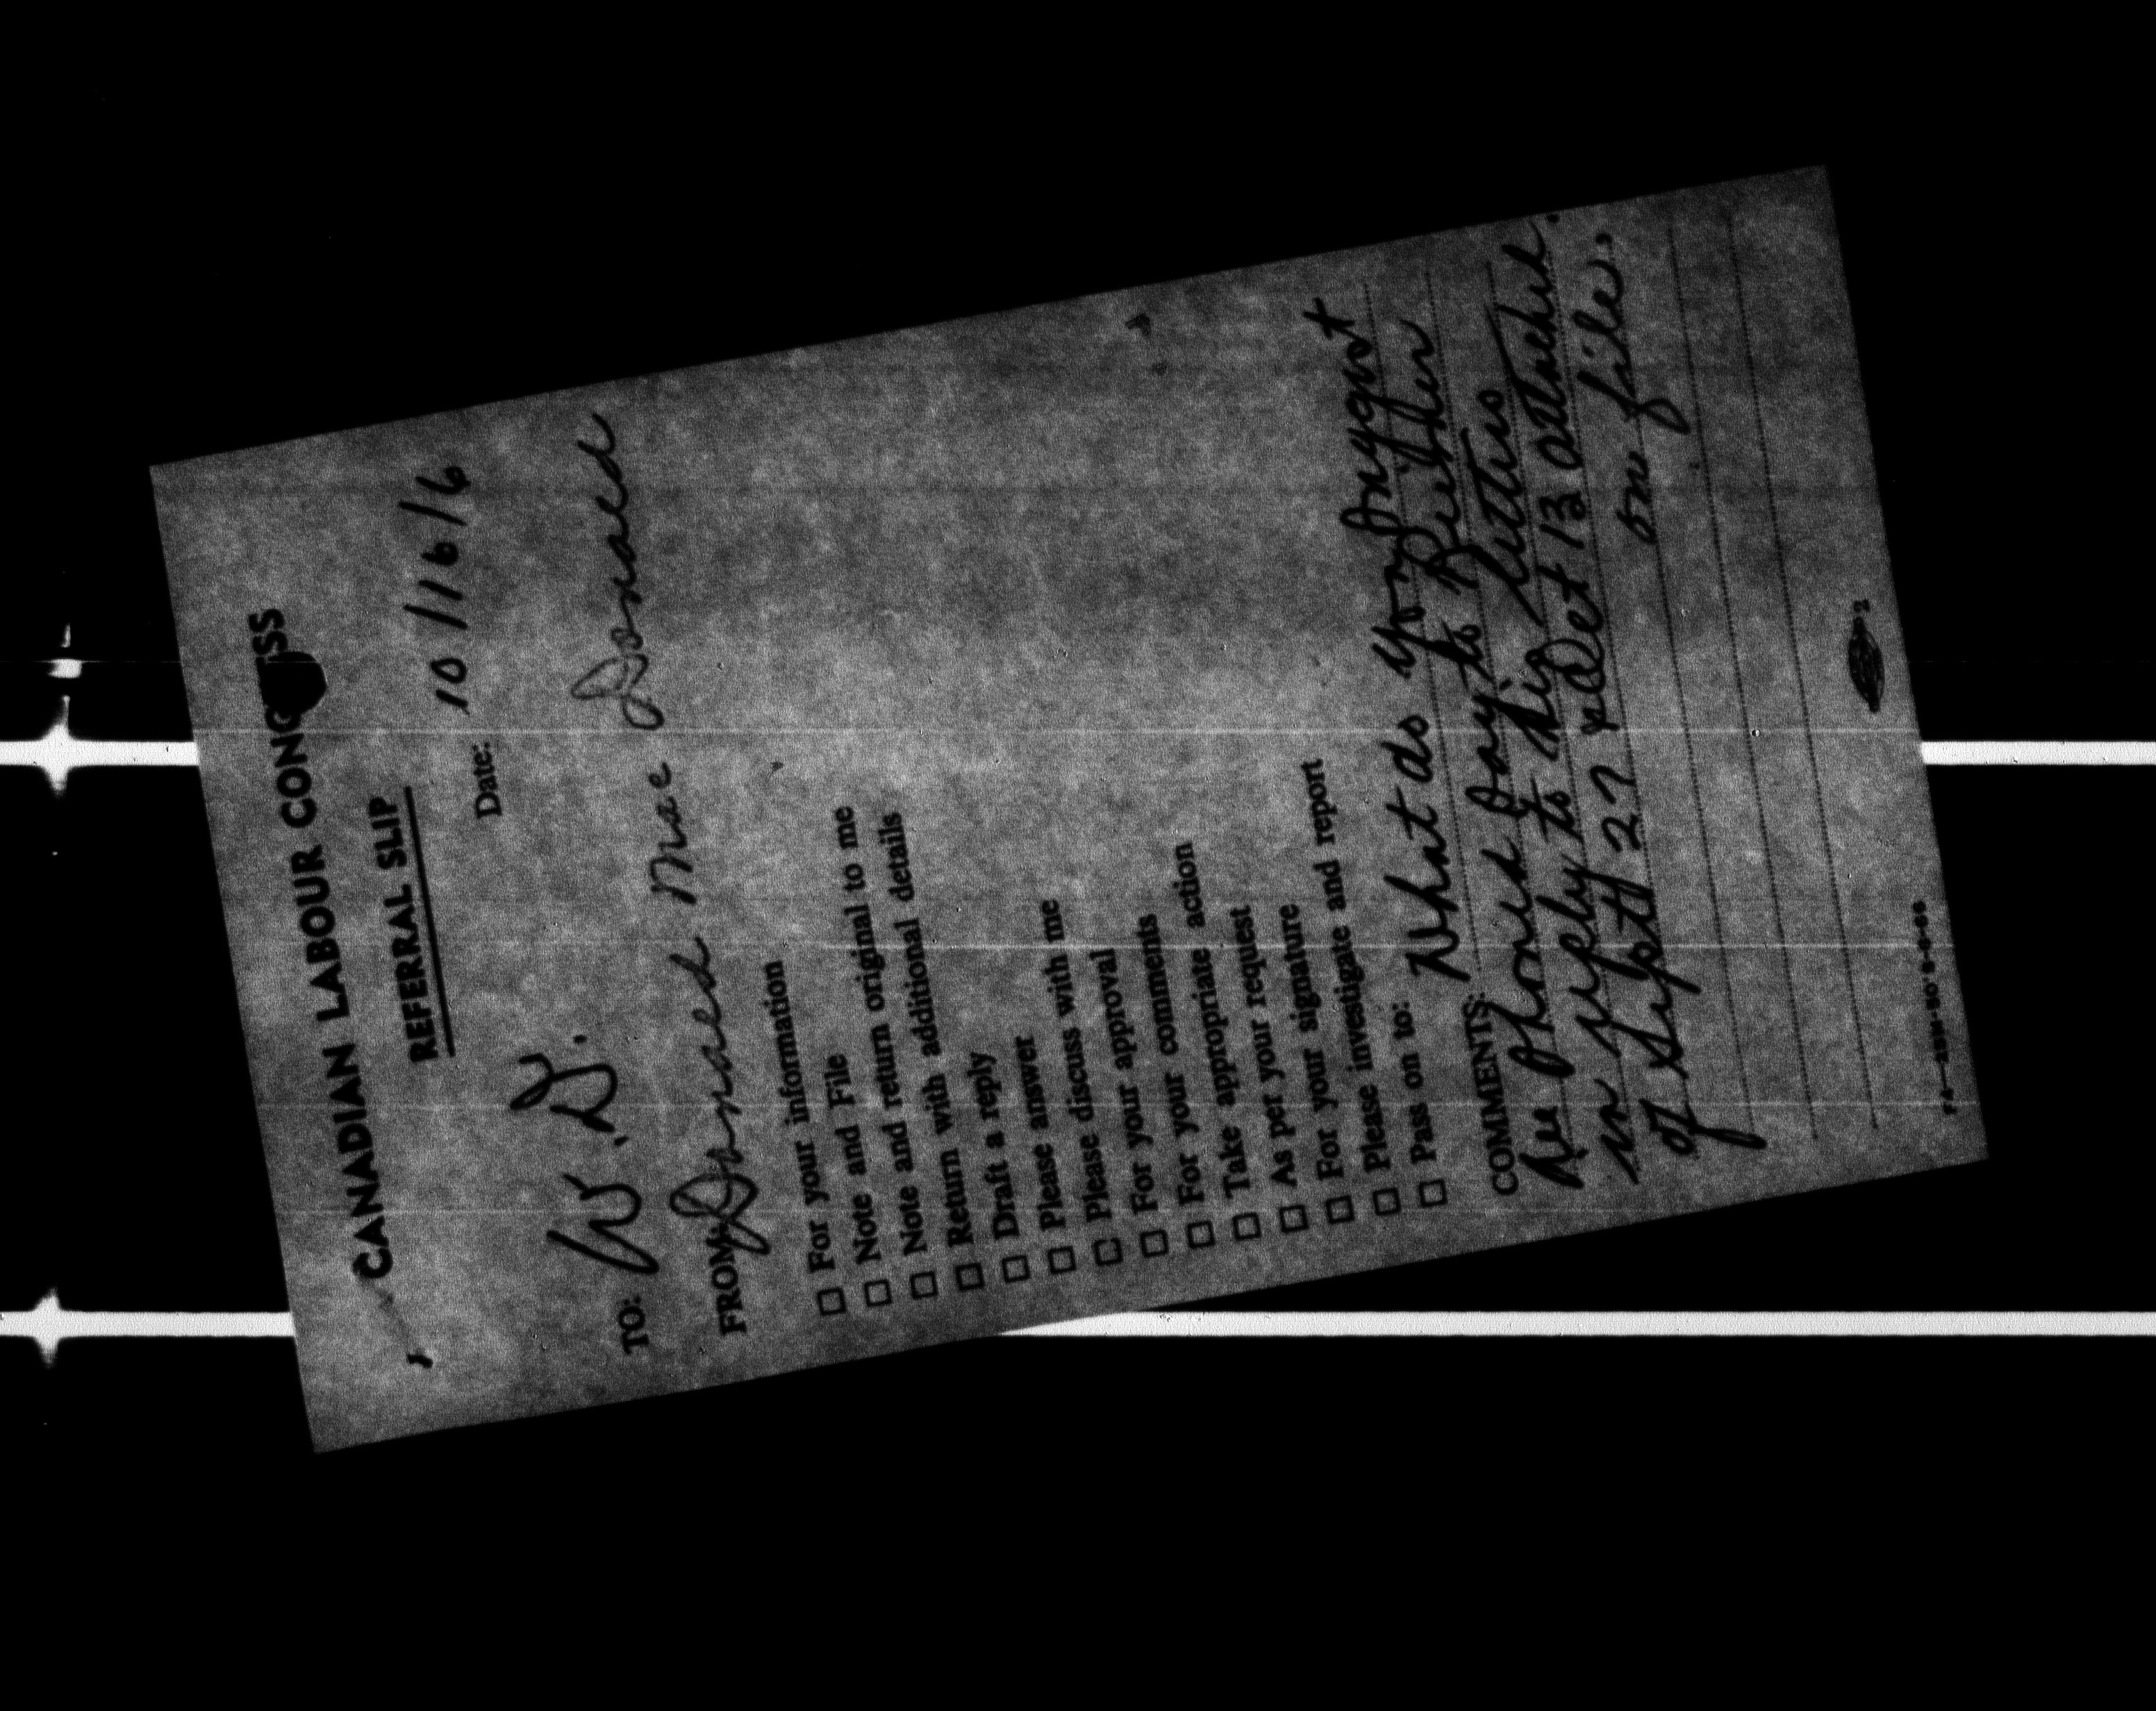 CANADIAN LABOUR CONGRESS
REFERRAL SLIP
Date: 10/11/6/6
TO: W.D.
FROM: Donald MacDonald
☐ For your information
☐ Note and File
☐ Note and return original to me
☐ Return with additional details
☐ Draft a reply
☐ Please answer
☐ Please discuss with me
☐ Please approval
☐ For your comments
☐ For your appropriate action
☐ Take appropriate request
☐ As per your signature
☐ For your investigate and report
☐ Please
☐ Pass on to:
COMMENTS: What do you suggest
Phoned Day to
in reply to his letters
of Sept 27 & Oct 13 attached.
on file.
2